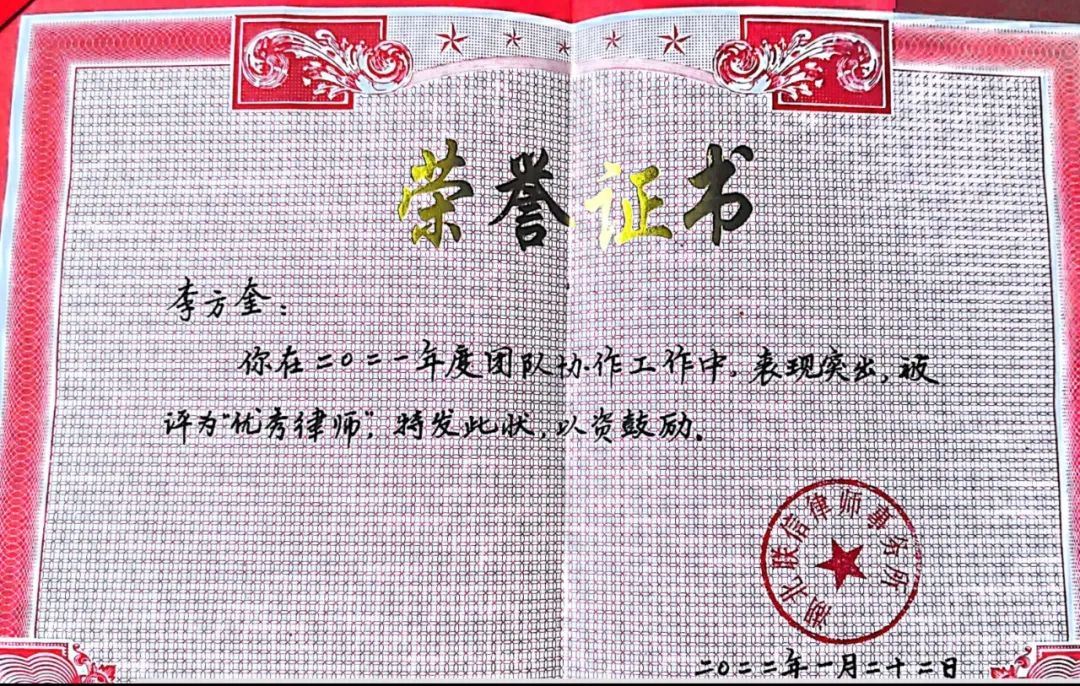 荣誉证书
李方奎：
你在二〇二一年度团队协作工作中，表现突出，被
评为“优秀律师”，特发此状，以资鼓励。
湖北联信律师事务所
二〇二二年一月二十二日